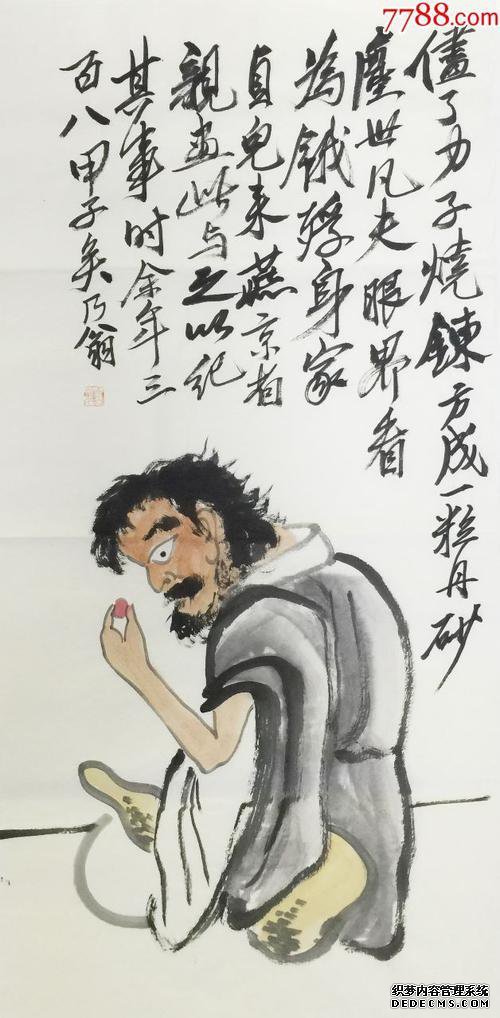 7788.com
儘了力子燒鍊方成一粒丹砂
塵世凡夫眼界看
為餓殍身家
貞兒来燕京省
親畫此与之以紀
其事时余年三
百八甲子矣乃翁
织梦内容管理系统
DEDECMS.COM